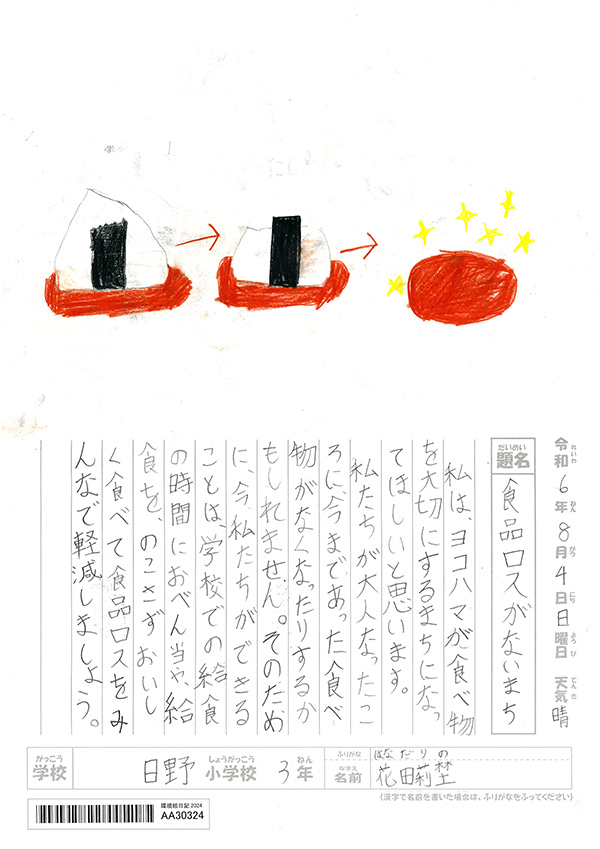 令和6年8月4日日曜日 天気晴
れいわ ねん がつ にち ようび てんき
だいめい
題名 食品ロスがないまち
私は、ヨコハマが食べ物
を大切にするまちになっ
てほしいと思います。
私たちが大人なったこ
ろに今まであった食べ
物がなくなったりするか
もしれません。そのため
に、今、私たちができる
ことは、学校での給食
の時間におべん当や、給
食を、のこさずおいし
く食べて食品ロスをみ
んなで軽減しましょう。
がっこう しょうがっこう ねん
学校 日野 小学校 3年
ふりがな はなだりの
なまえ
名前 花田莉埜
(漢字で名前を書いた場合は、ふりがなをふってください)
環境絵日記2024
AA30324